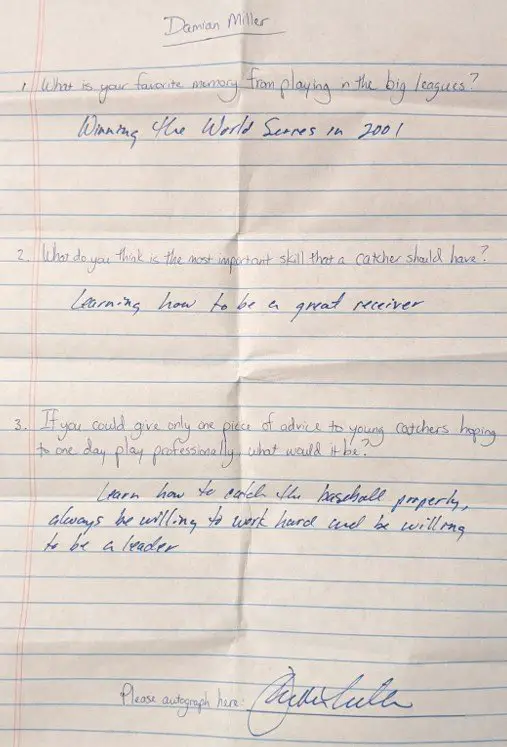 Damian Miller
1. What is your favorite memory from playing in the big leagues?
Winning the World Series in 2001
2. What do you think is the most important skill that a catcher should have?
Learning how to be a great receiver
3. If you could give only one piece of advice to young catchers hoping
to one day play professionally, what would it be?
Learn how to catch the baseball properly,
always be willing to work hard and be willing
to be a leader
Please autograph here: